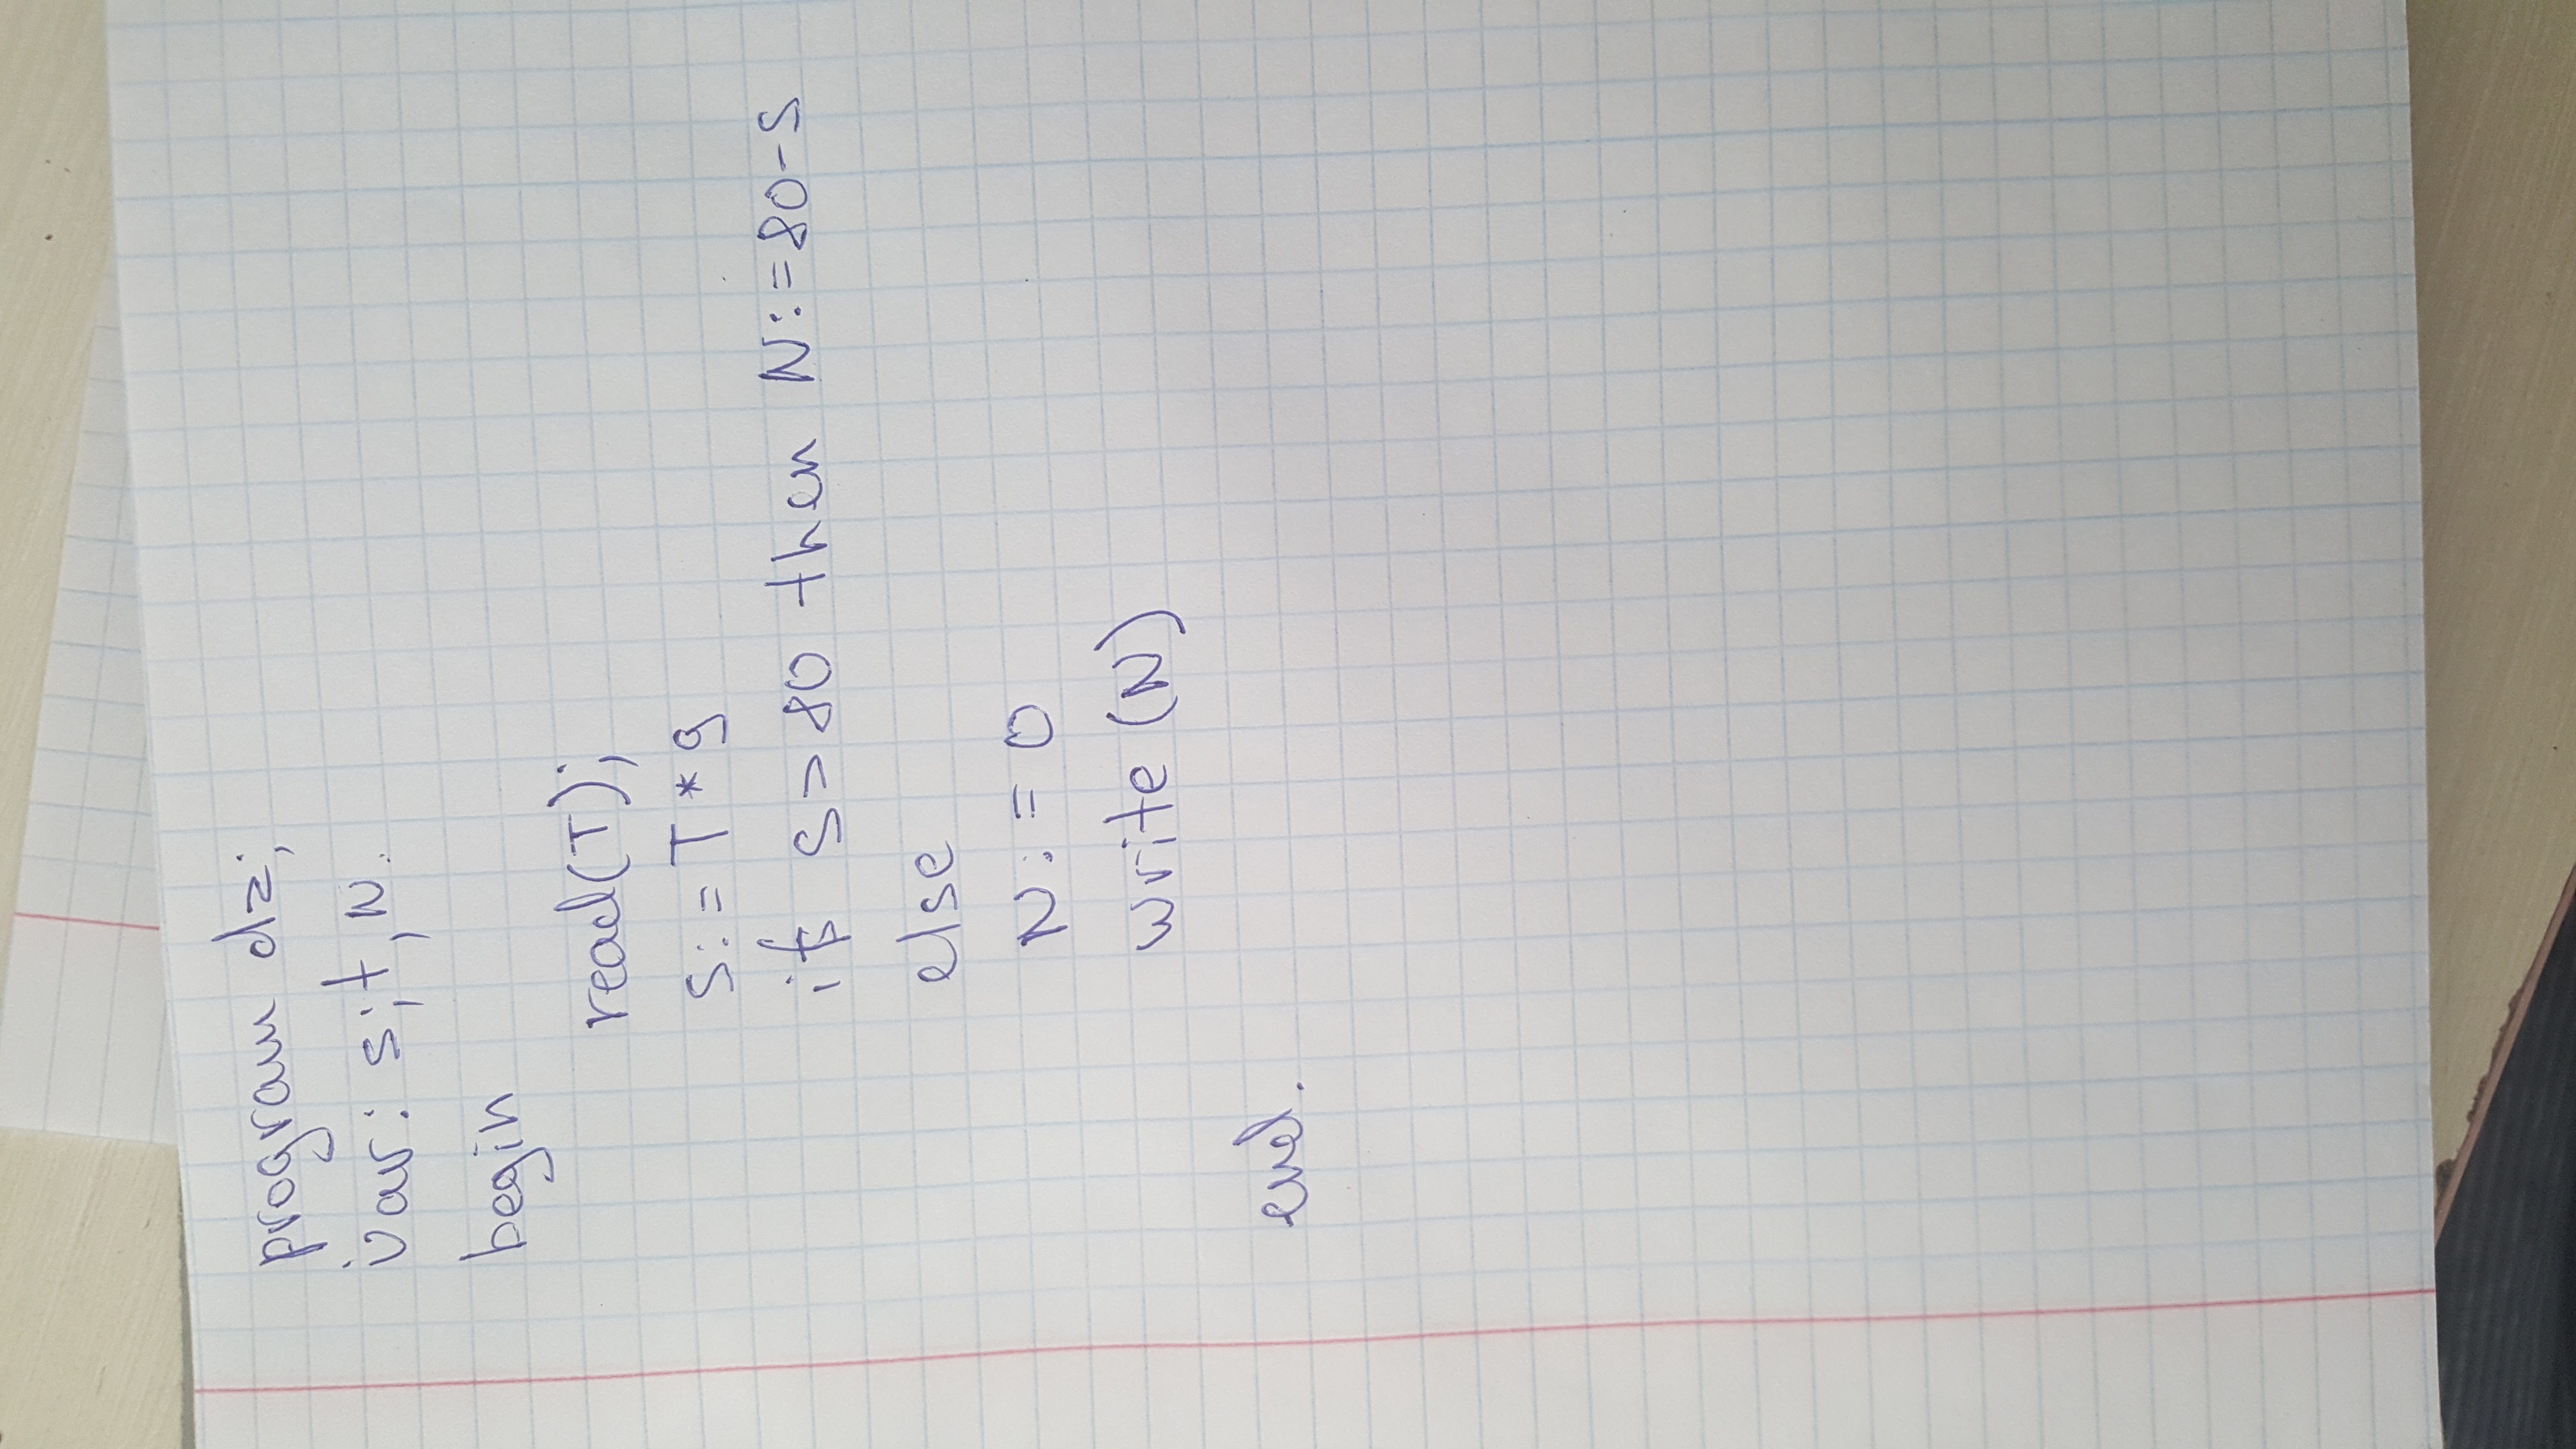 program dz;
var: s;t,N.
begin
read(T);
S:=T*9
if S>80 then N:=80-S
else
N:=0
write(N)
end.